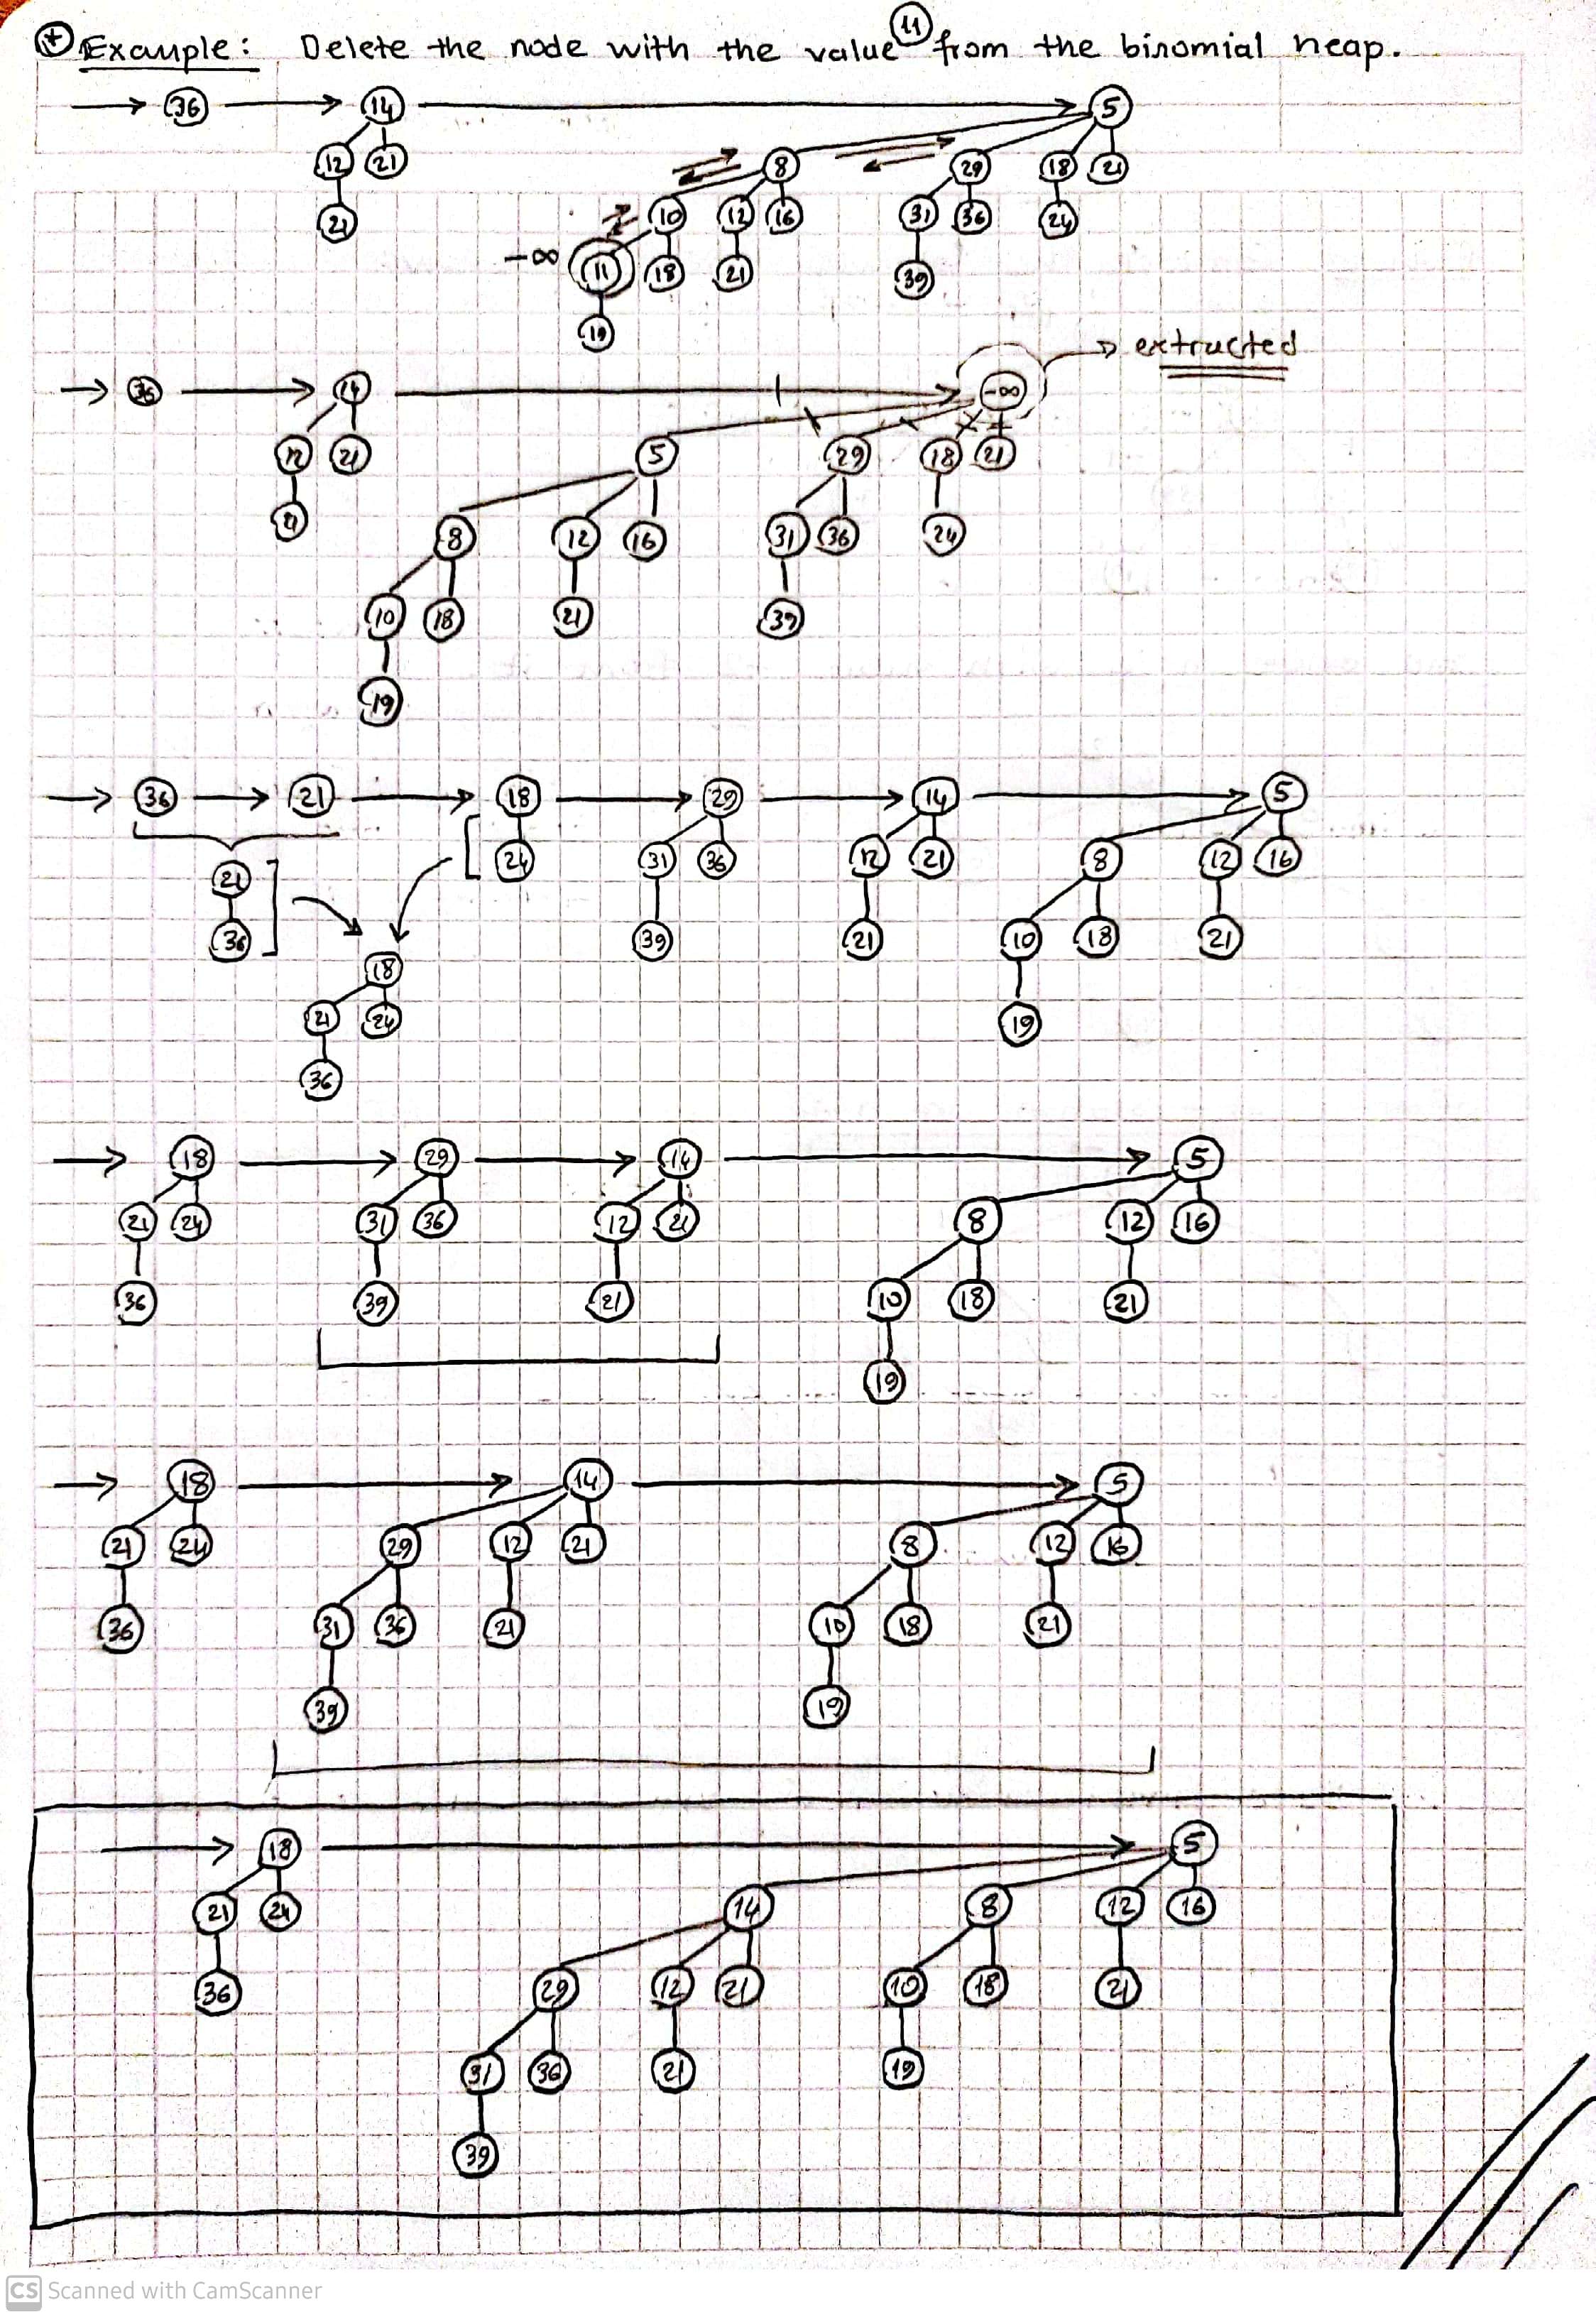 Example: Delete the node with the value 11 from the binomial heap.
36 14 5
12 21 8 29 18 21
21 10 12 16 31 36 24
-∞ 11 18 21 39
19
extructed
36 14 -∞
12 21 5 29 18 21
21 8 12 16 31 36 24
10 18 21 39
19
36 21 18 29 14 5
21 24 31 36 12 21 8 12 16
36 39 21 10 18 21
18
21 24 19
36
18 29 14 5
21 24 31 36 12 21 8 12 16
36 39 21 10 18 21
19
18 14 5
21 24 29 12 21 8 12 16
36 31 36 21 10 18 21
39 19
18 5
21 24 14 8 12 16
36 29 12 21 10 18 21
31 36 21 19
39
CS Scanned with CamScanner